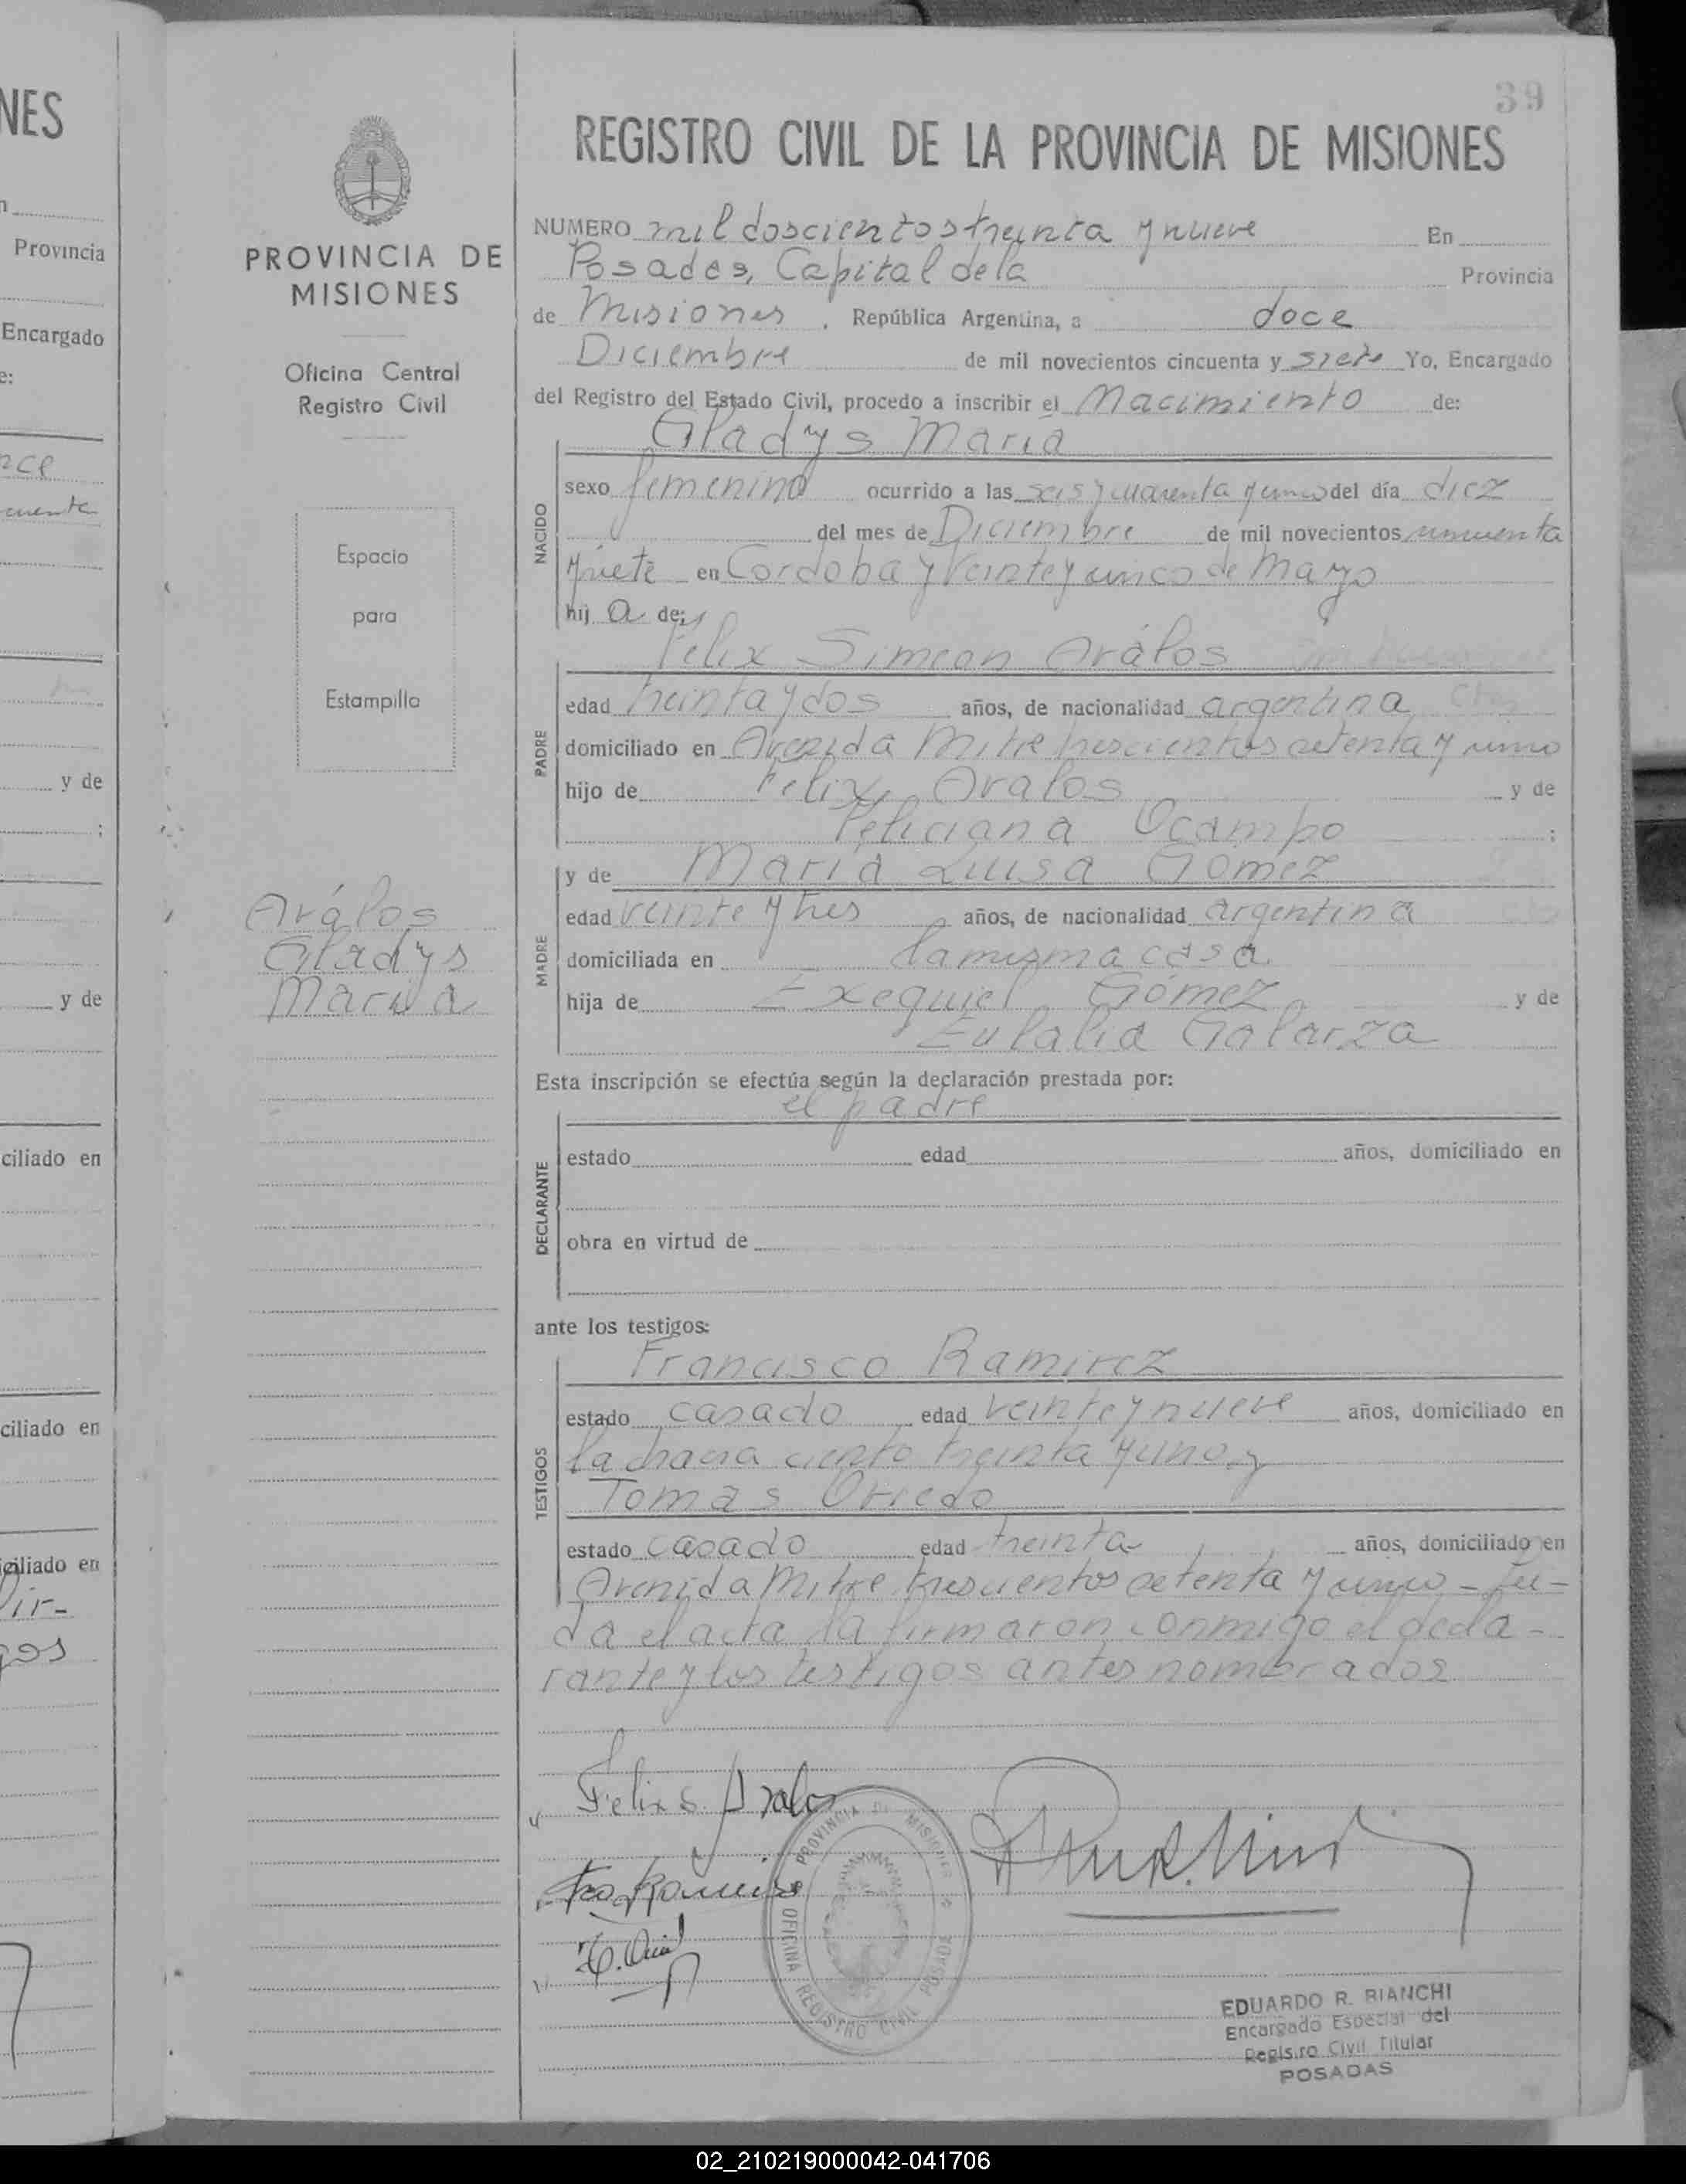 NES
Provincia
Encargado
e:
nce
y de
;
y de
ciliado en
ciliado en
ciliado en
Vir-
gos
PROVINCIA DE
MISIONES
Oficina Central
Registro Civil
Espacio
para
Estampilla
Aválos
Gladys
Maria
39
REGISTRO CIVIL DE LA PROVINCIA DE MISIONES
NUMERO mil doscientos treinta y nueve En
Posadas, Capital de la Provincia
de Misiones, República Argentina, a doce
Diciembre de mil novecientos cincuenta y siete Yo, Encargado
del Registro del Estado Civil, procedo a inscribir el Nacimiento de:
Gladys Maria
NACIDO
sexo femenino ocurrido a las seis y cuarenta y cinco del día diez
del mes de Diciembre de mil novecientos cincuenta
y siete en Cordoba y Veinte y cinco de Mayo
hij a de:
Felix Simeon Aválos
PADRE
edad treinta y dos años, de nacionalidad argentina
domiciliado en Avenida Mitre trescientos setenta y cinco
hijo de Felix Avalos y de
Feliciana Ocampo ;
y de Maria Luisa Gomez
MADRE
edad veinte y tres años, de nacionalidad argentina
domiciliada en la misma casa
hija de Exequiel Gómez y de
Eulalia Galarza
Esta inscripción se efectúa según la declaración prestada por:
el padre
DECLARANTE
estado edad años, domiciliado en
obra en virtud de
ante los testigos:
Francisco Ramirez
TESTIGOS
estado casado edad veinte y nueve años, domiciliado en
la chacra ciento treinta y uno y
Tomas Oviedo
estado casado edad treinta años, domiciliado en
Avenida Mitre trescientos setenta y cinco - Leí-
da el acta la firmaron conmigo el decla-
rante y los testigos antes nombrados
Felix S. Avalos
Fco Ramirez
PROVINCIA DE MISIONES
OFICINA REGISTRO CIVIL POSADAS
EDUARDO R. BIANCHI
Encargado Especial del
Registro Civil Titular
POSADAS
02_210219000042-041706